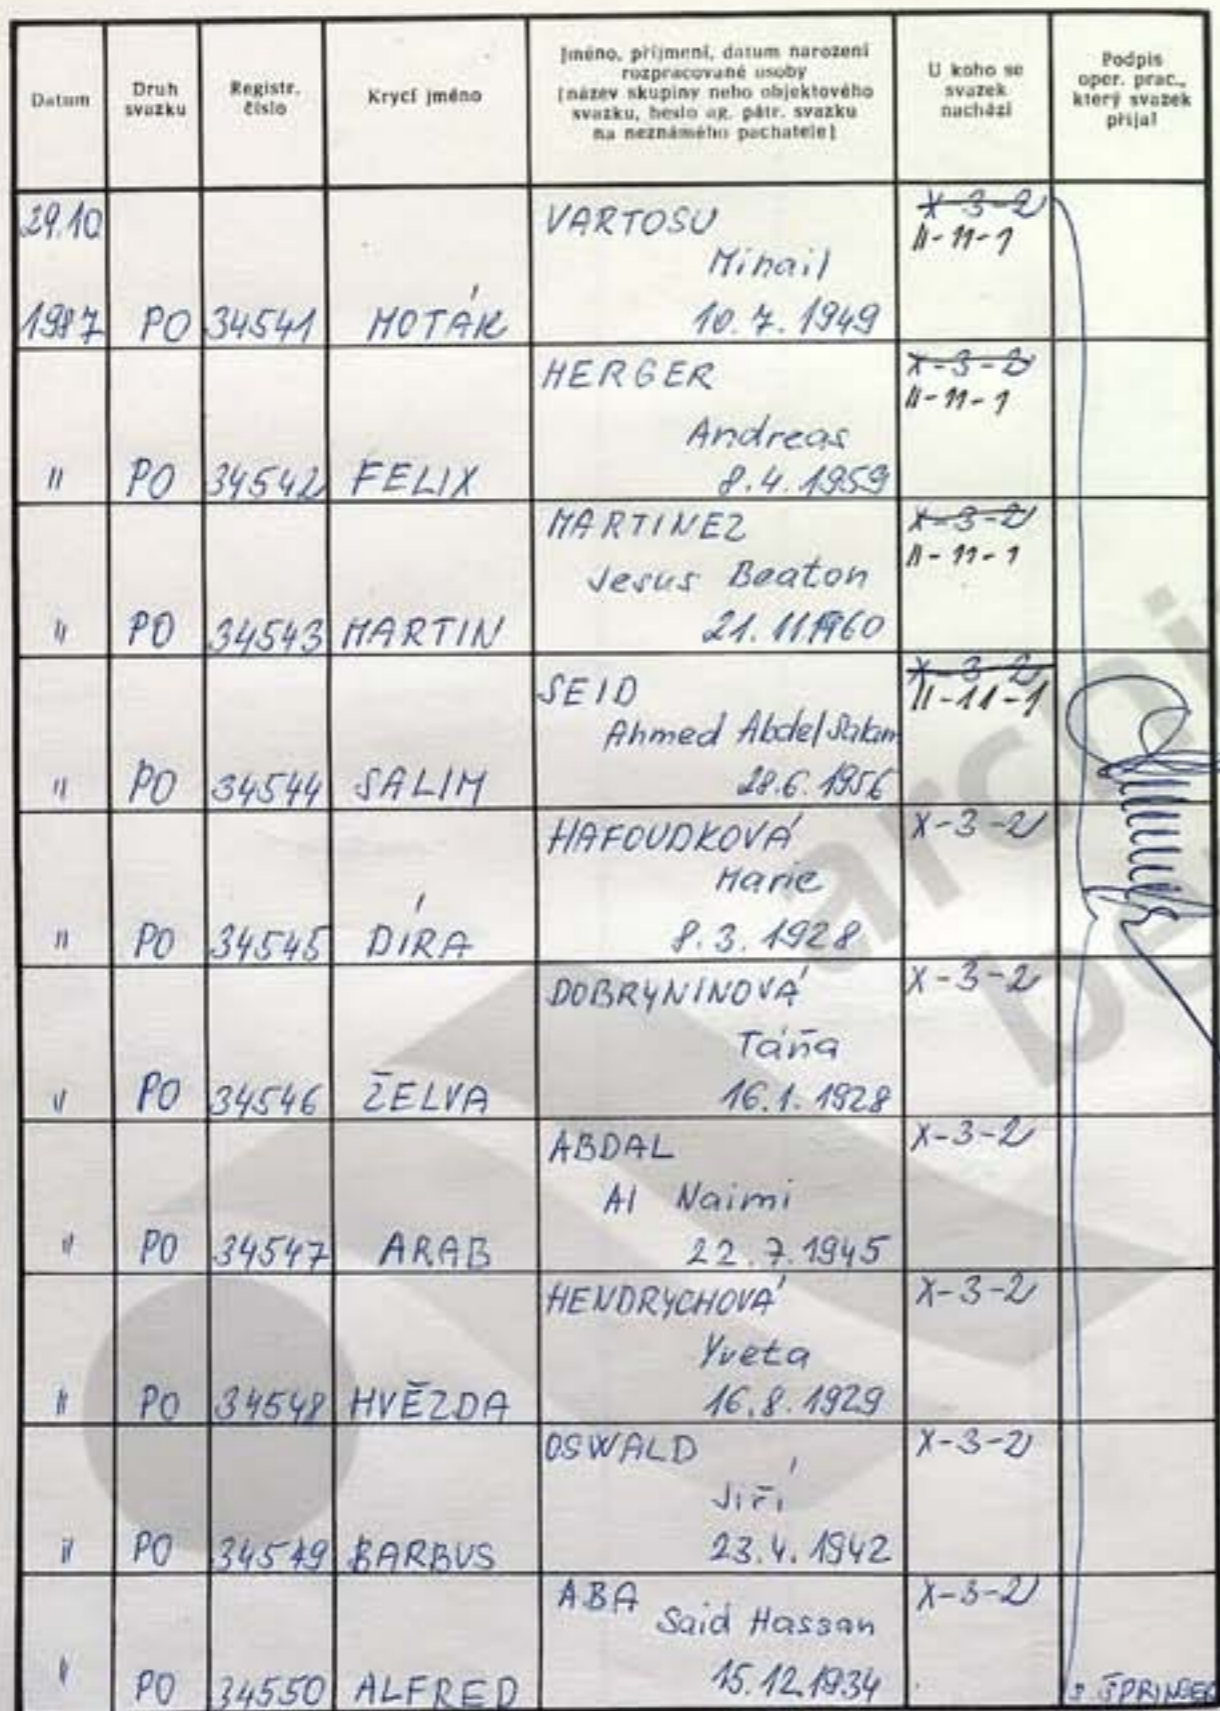 Datum
Druh
svazku
Registr.
číslo
Krycí jméno
Jméno, příjmení, datum narození
rozpracované osoby
(název skupiny nebo objektového
svazku, heslo ag. pátr. svazku
na neznámého pachatele)
U koho se
svazek
nachází
Podpis
oper. prac.,
který svazek
přijal
29.10
1987 PO 34541 MOTÁK
VARTOSU
Mihail
10. 7. 1949
X-3-2
II-11-1
" PO 34542 FELIX
HERGER
Andreas
8. 4. 1959
X-3-2
II-11-1
" PO 34543 MARTIN
MARTINEZ
Jesus Beaton
21. 11. 1960
X-3-2
II-11-1
" PO 34544 SALIM
SEID
Ahmed Abdel Salam
28. 6. 1956
X-3-2
II-11-1
" PO 34545 DÍRA
HAFOUDKOVÁ
Marie
8. 3. 1928
X-3-2
" PO 34546 ŽELVA
DOBRYNINOVÁ
Táňa
16. 1. 1928
X-3-2
" PO 34547 ARAB
ABDAL
Al Naimi
22. 7. 1945
X-3-2
" PO 34548 HVĚZDA
HENDRYCHOVÁ
Yveta
16. 8. 1929
X-3-2
" PO 34549 BARBUS
OSWALD
Jiří
23. 4. 1942
X-3-2
" PO 34550 ALFRED
ABA
Said Hassan
15. 12. 1934
X-3-2
ŠPRINGER